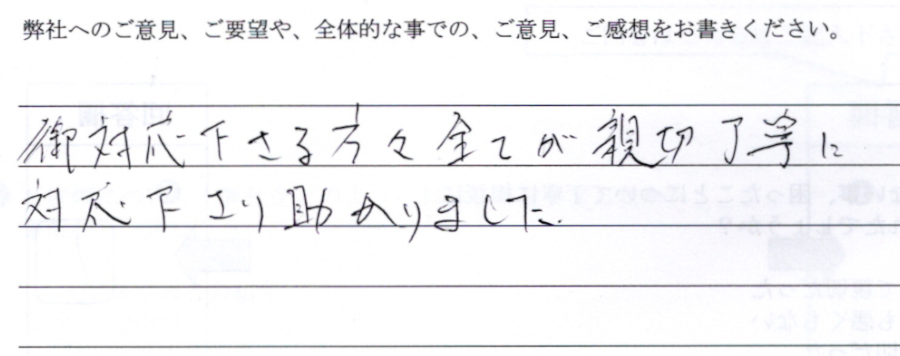 弊社へのご意見、ご要望や、全体的な事での、ご意見、ご感想をお書きください。
御対応下さる方々全てが親切丁寧に
対応下さり助かりました.